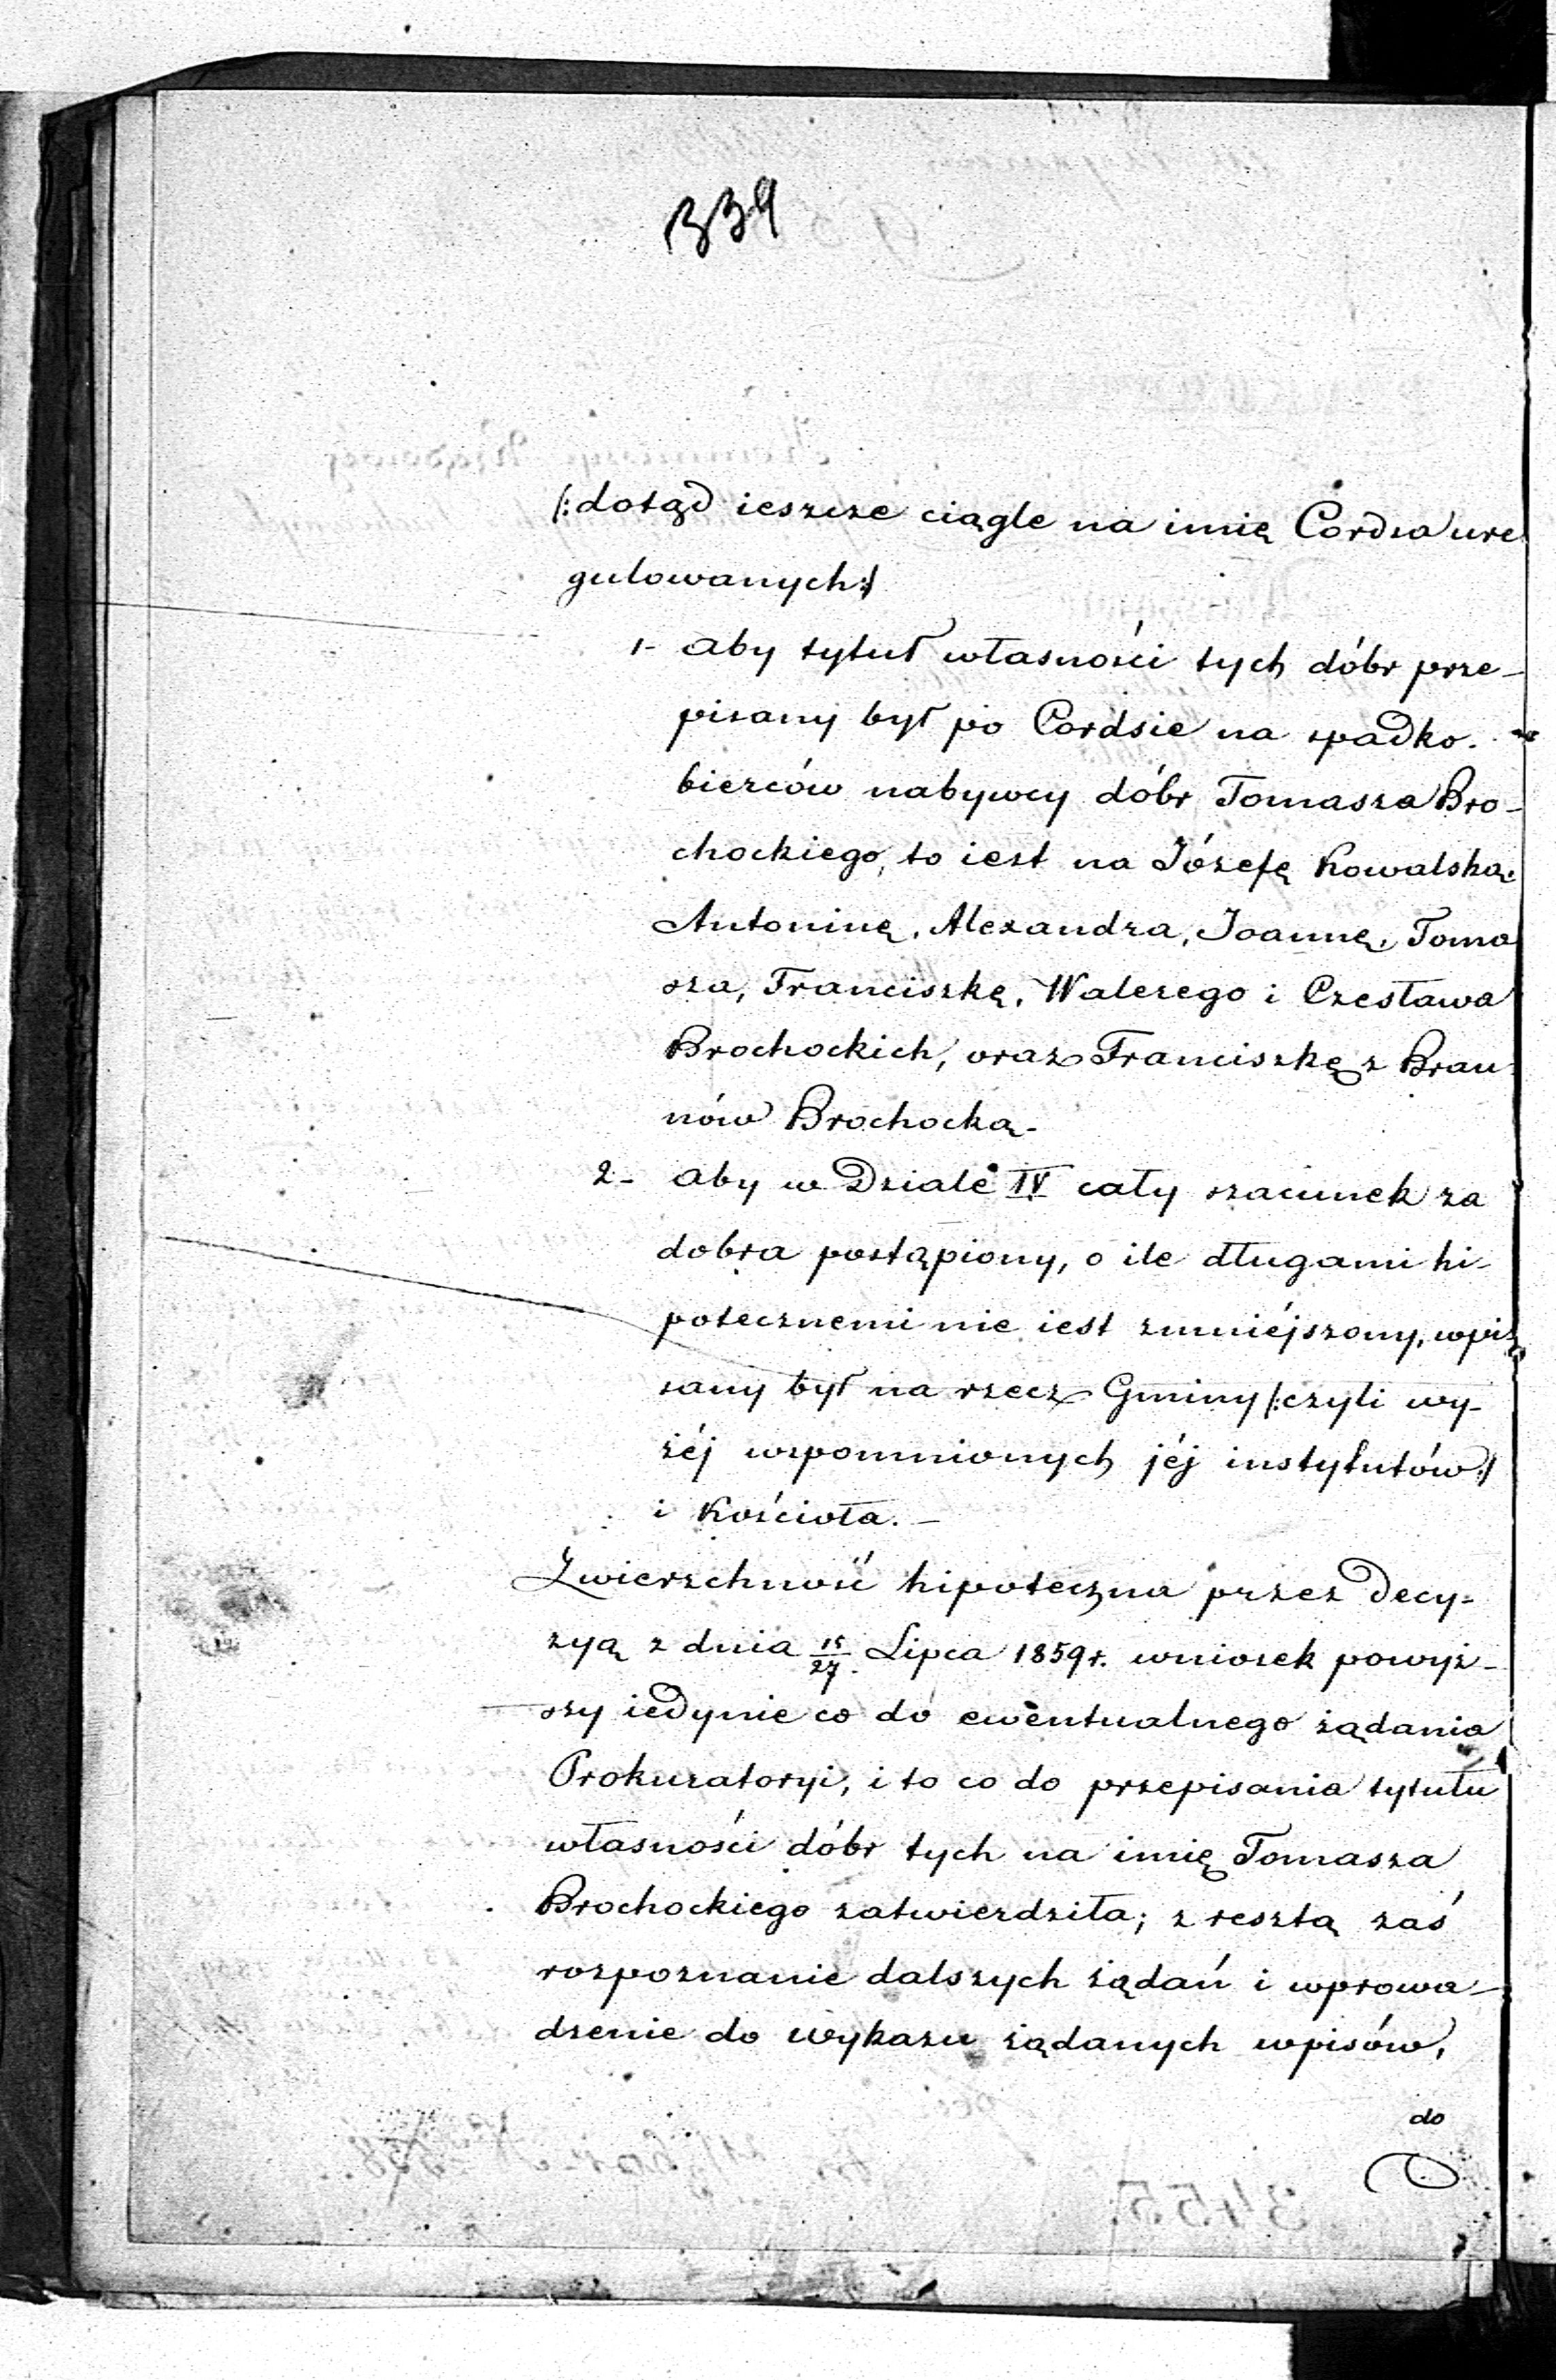 339
(:dotąd ieszcze ciągle na imię Cordsa ure
gulowanych:)
1- aby tytuł własności tych dóbr prze-
pisany był po Cordsie na spadko-
bierców nabywcy dóbr Tomasza Bro-
chockiego, to iest na Józefę Kowalską,
Antoninę, Alexandra, Joannę, Toma
sza, Franciszkę, Walerego i Czesława
Brochockich, oraz Franciszkę z Brau-
nów Brochocką-
2- aby w Dziale IV cały szacunek za
dobra postąpiony, o ile długami hi-
potecznemi nie iest zmniéjszony, wpi
sany był na rzecz Gminy (:czyli wy-
żéj wspomnionych jéj instytutów:)
i Kościoła.-
Zwierzchność hipoteczna przez Decy-
zyą z dnia 15/27. Lipca 1859 r. wniosek powyż-
szy iedynie co do ewentualnego żądania
Prokuratoryi, i to co do przepisania tytułu
własności dóbr tych na imię Tomasza
Brochockiego zatwierdziła; z resztą zaś
rozpoznanie dalszych żądań i wprowa-
dzenie do wykazu żądanych wpisów,
do